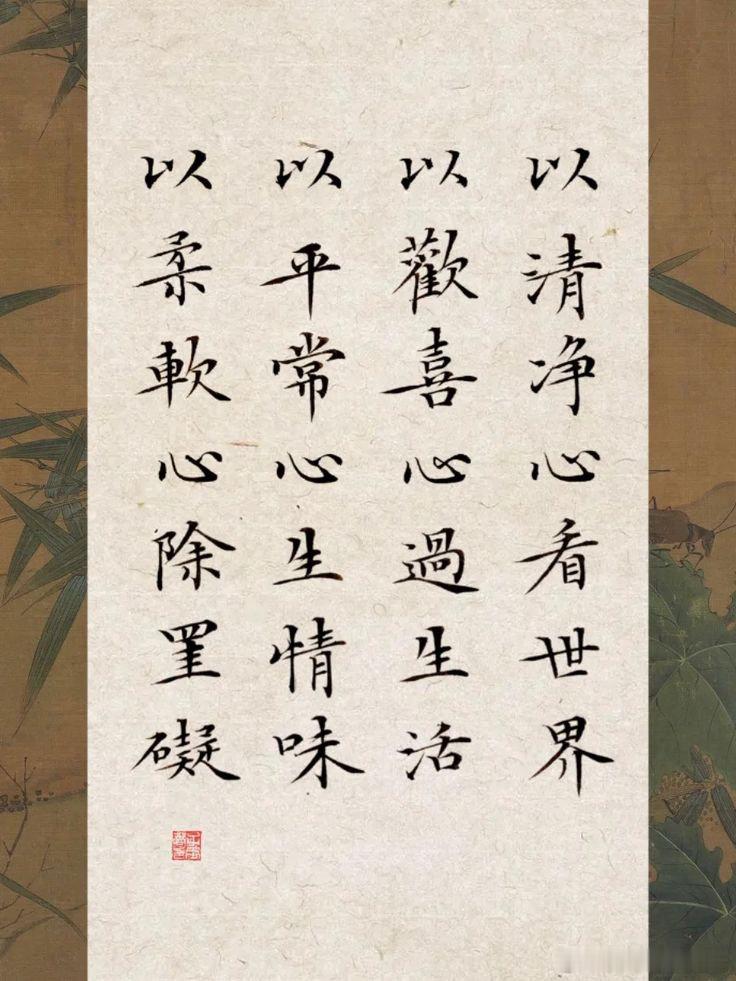 以清净心看世界
以歡喜心過生活
以平常心生情味
以柔軟心除罣礙